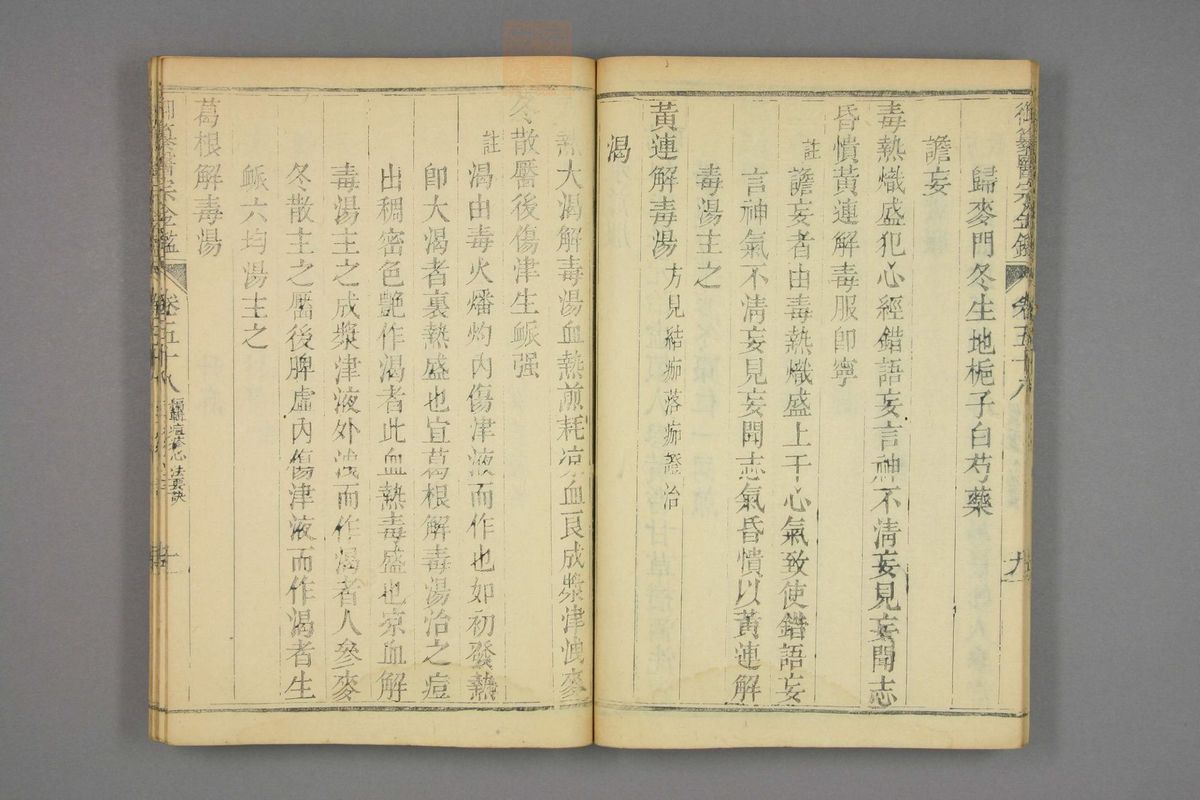 御纂醫宗金鑑 卷五十八 九
歸麥門冬生地梔子白芍藥
譫妄
毒熱熾盛犯心經錯語妄言神不清妄見妄聞志
昏憒黃連解毒服卽寧
註 譫妄者由毒熱熾盛上干心氣致使錯語妄
言神氣不清妄見妄聞志氣昏憒以黃連解
毒湯主之
黃連解毒湯 方見結痂落痂證治
渴
熱大渴解毒湯血熱煎耗凉血良成漿津洩麥
冬散靨後傷津生脈强
註 渴由毒火燔灼內傷津液而作也如初發熱
卽大渴者裏熱盛也宜葛根解毒湯治之痘
出稠密色艷作渴者此血熱毒盛也凉血解
毒湯主之成漿津液外洩而作渴者人參麥
冬散主之靨後脾虛內傷津液而作渴者生
脈六均湯主之
葛根解毒湯
御纂醫宗金鑑 卷五十八